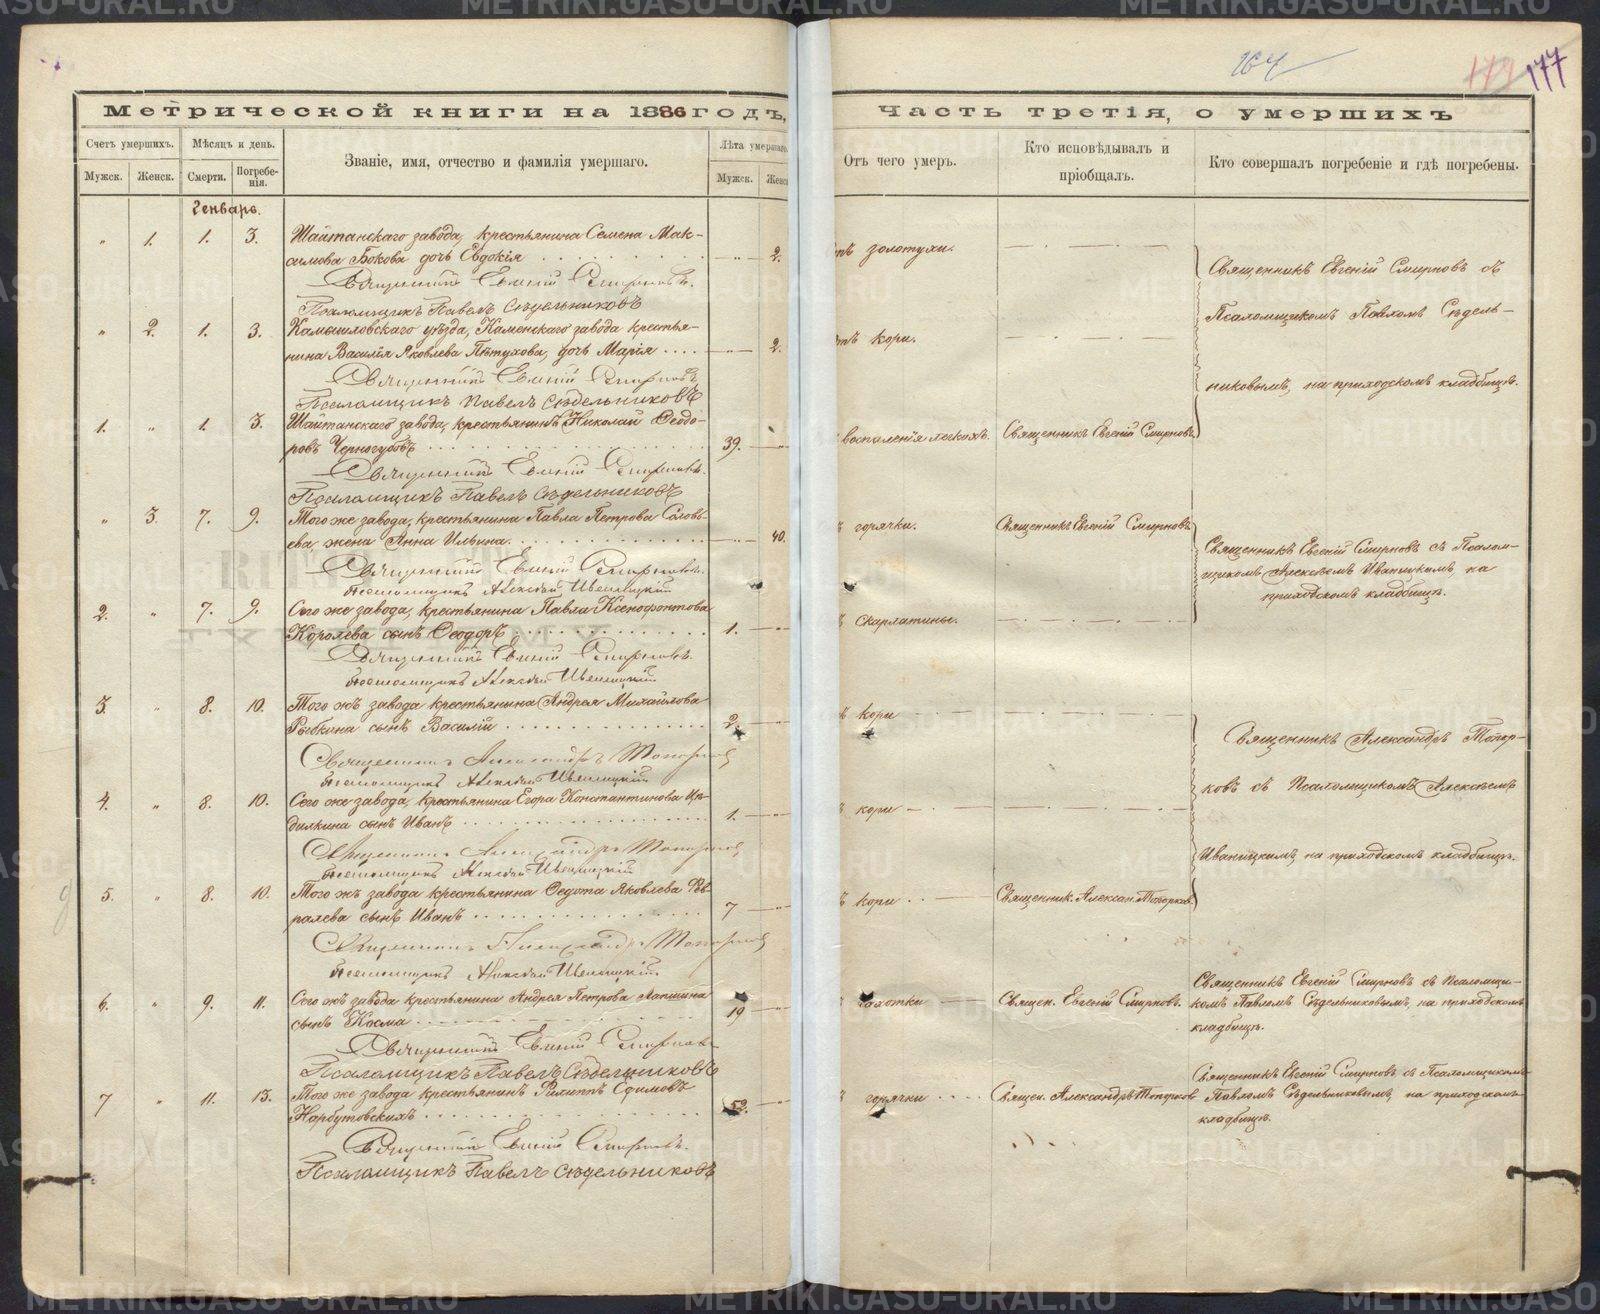 164
177
Метрической книги на 1886 годъ,
Часть третія, о умершихъ
Счетъ умершихъ.
Мѣсяцъ и день.
Званіе, имя, отчество и фамилія умершаго.
Лѣта умершаго.
Мужск.
Женск.
Смерти.
Погребе-
нія.
Мужск.
Женск.
Отъ чего умеръ.
Кто исповѣдывалъ и
пріобщалъ.
Кто совершалъ погребеніе и гдѣ погребены.
Генварь.
" 1. 1. 3. Шайтанскаго завода, крестьянина Семена Мак-
симова Бокова дочь Евдокія 2.
отъ золотухи.
Священникъ Евгеній Смирновъ
Псаломщикъ Павелъ Сѣдельниковъ
" 2. 1. 3. Камышловскаго уѣзда, Каменскаго завода крестья-
нина Василія Яковлева Пѣтухова, дочь Марія 2.
отъ кори.
Священникъ Евгеній Смирновъ
Псаломщикъ Павелъ Сѣдельниковъ
1. " 1. 3. Шайтанскаго завода, крестьянинъ Николай Ѳеодо-
ровъ Черногубовъ 39.
воспаленія легкихъ. Священникъ Евгеній Смирновъ
Священникъ Евгеній Смирновъ.
Псаломщикъ Павелъ Сѣдельниковъ
Священникъ Евгеній Смирновъ съ
Псаломщикомъ Павломъ Сѣдель-
никовымъ, на приходскомъ кладбищѣ.
" 3. 7. 9. Того же завода, крестьянина Павла Петрова Соловь-
ева, жена Анна Ильина. 40.
горячки. Священникъ Евгеній Смирновъ
Священникъ Евгеній Смирновъ.
Псаломщикъ Алексѣй Иваницкій
2. " 7. 9. Сего же завода, крестьянина Павла Ксенофонтова
Королева сынъ Ѳеодоръ 1.
скарлатины.
Священникъ Евгеній Смирновъ.
Псаломщикъ Алексѣй Иваницкій
Священникъ Евгеній Смирновъ съ Псалом-
щикомъ Алексѣемъ Иваницкимъ, на
приходскомъ кладбищѣ.
3. " 8. 10. Того жъ завода крестьянина Андрея Михайлова
Рыбкина сынъ Василій 2.
кори
Священникъ Александръ Топорковъ
Псаломщикъ Алексѣй Иваницкій
4. " 8. 10. Сего же завода, крестьянина Егора Константинова
сынъ Иванъ 1.
кори
Священникъ Александръ Топорковъ
Псаломщикъ Алексѣй Иваницкій
5. " 8. 10. Того жъ завода крестьянина Ѳедота Яковлева Фев-
ралева сынъ Иванъ 7
кори Священник. Александ. Топорков.
Священникъ Александръ Топорковъ
Псаломщикъ Алексѣй Иваницкій
Священникъ Александръ Топор-
ковъ съ Псаломщикомъ Алексѣемъ
Иваницкимъ, на приходскомъ кладбищѣ.
6. " 9. 11. Сего жъ завода крестьянина Андрея Петрова Лапшина
сынъ Косма 19
чахотки Священ. Евгеній Смирновъ.
Священникъ Евгеній Смирновъ
Псаломщикъ Павелъ Сѣдельниковъ
Священникъ Евгеній Смирновъ съ Псаломщи-
комъ Павломъ Сѣдельниковымъ, на приходскомъ
кладбищѣ.
7 " 11. 13. Того же завода крестьянинъ Филиппъ Ефимовъ
Нарбутовскихъ
горячки Священ. Александръ Топорковъ
Священникъ Евгеній Смирновъ.
Псаломщикъ Павелъ Сѣдельниковъ
Священникъ Евгеній Смирновъ съ Псаломщикомъ
Павломъ Сѣдельниковымъ, на приходскомъ
кладбищѣ.
METRIKI.GASO-URAL.RU